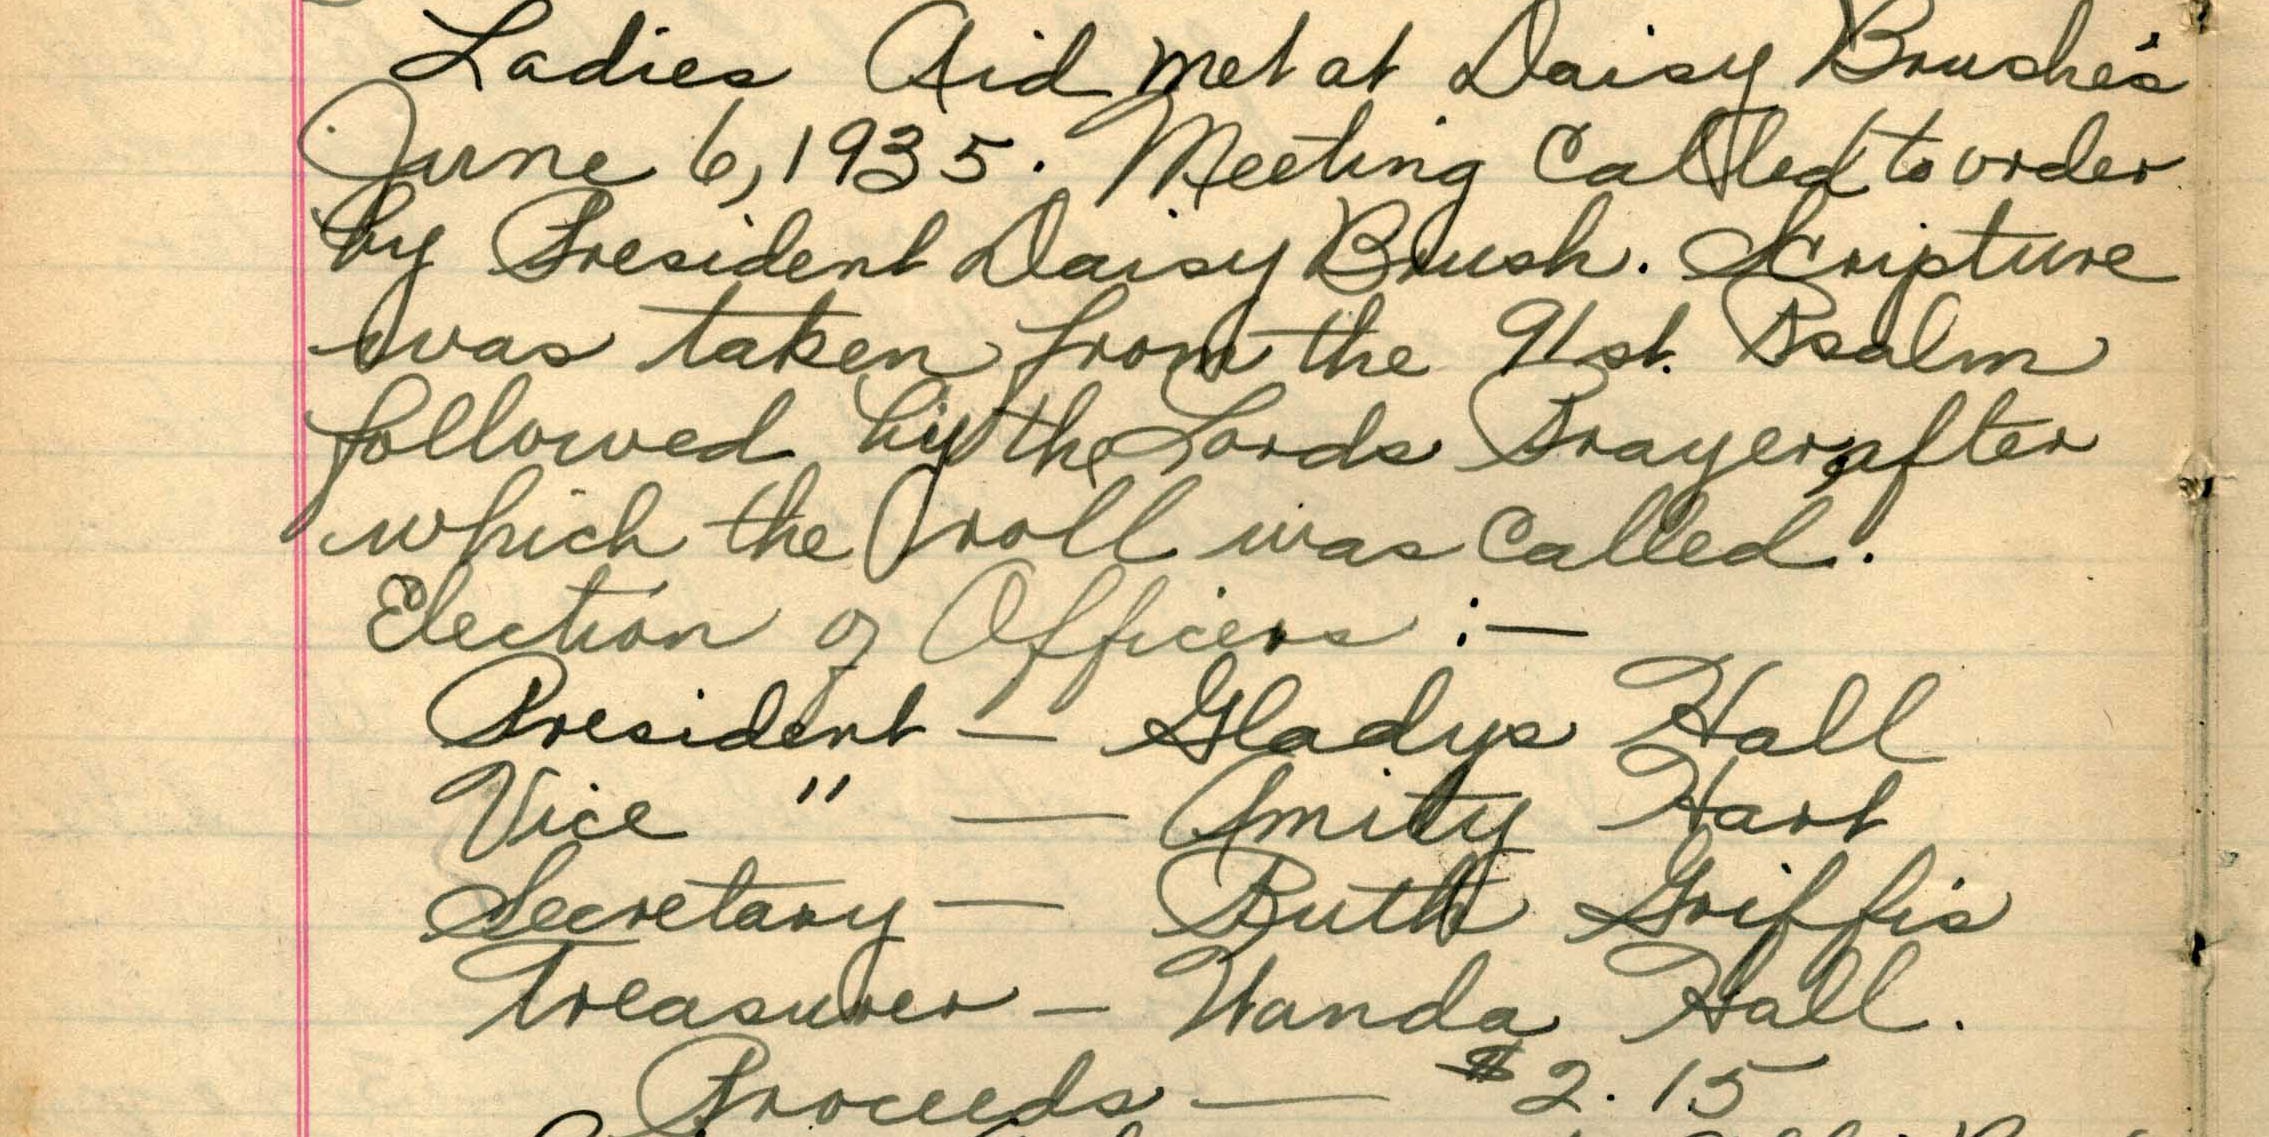 Ladies Aid met at Daisy Brushe's
June 6, 1935. Meeting Called to order
by President Daisy Brush. Scripture
was taken from the 91st. Psalm
followed by the Lords Prayer, after
which the roll was called.
Election of Officers :—
President — Gladys Hall
Vice " — Amity Hart
Secretary — Ruth Griffis
Treasurer — Wanda Hall.
Proceeds — $2.15